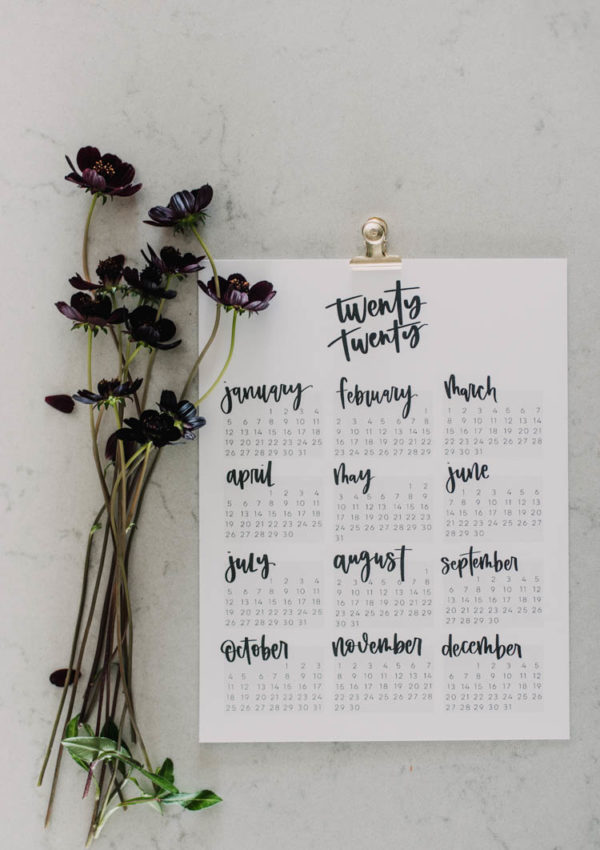 twenty
twenty
january
1 2 3 4
5 6 7 8 9 10 11
12 13 14 15 16 17 18
19 20 21 22 23 24 25
26 27 28 29 30 31
february
1
2 3 4 5 6 7 8
9 10 11 12 13 14 15
16 17 18 19 20 21 22
23 24 25 26 27 28 29
march
1 2 3 4 5 6 7
8 9 10 11 12 13 14
15 16 17 18 19 20 21
22 23 24 25 26 27 28
29 30 31
april
1 2 3 4
5 6 7 8 9 10 11
12 13 14 15 16 17 18
19 20 21 22 23 24 25
26 27 28 29 30
may
1 2
3 4 5 6 7 8 9
10 11 12 13 14 15 16
17 18 19 20 21 22 23
24 25 26 27 28 29 30
31
june
1 2 3 4 5 6
7 8 9 10 11 12 13
14 15 16 17 18 19 20
21 22 23 24 25 26 27
28 29 30
july
1 2 3 4
5 6 7 8 9 10 11
12 13 14 15 16 17 18
19 20 21 22 23 24 25
26 27 28 29 30 31
august
1
2 3 4 5 6 7 8
9 10 11 12 13 14 15
16 17 18 19 20 21 22
23 24 25 26 27 28 29
30 31
september
1 2 3 4 5
6 7 8 9 10 11 12
13 14 15 16 17 18 19
20 21 22 23 24 25 26
27 28 29 30
october
1 2 3
4 5 6 7 8 9 10
11 12 13 14 15 16 17
18 19 20 21 22 23 24
25 26 27 28 29 30 31
november
1 2 3 4 5 6 7
8 9 10 11 12 13 14
15 16 17 18 19 20 21
22 23 24 25 26 27 28
29 30
december
1 2 3 4 5
6 7 8 9 10 11 12
13 14 15 16 17 18 19
20 21 22 23 24 25 26
27 28 29 30 31